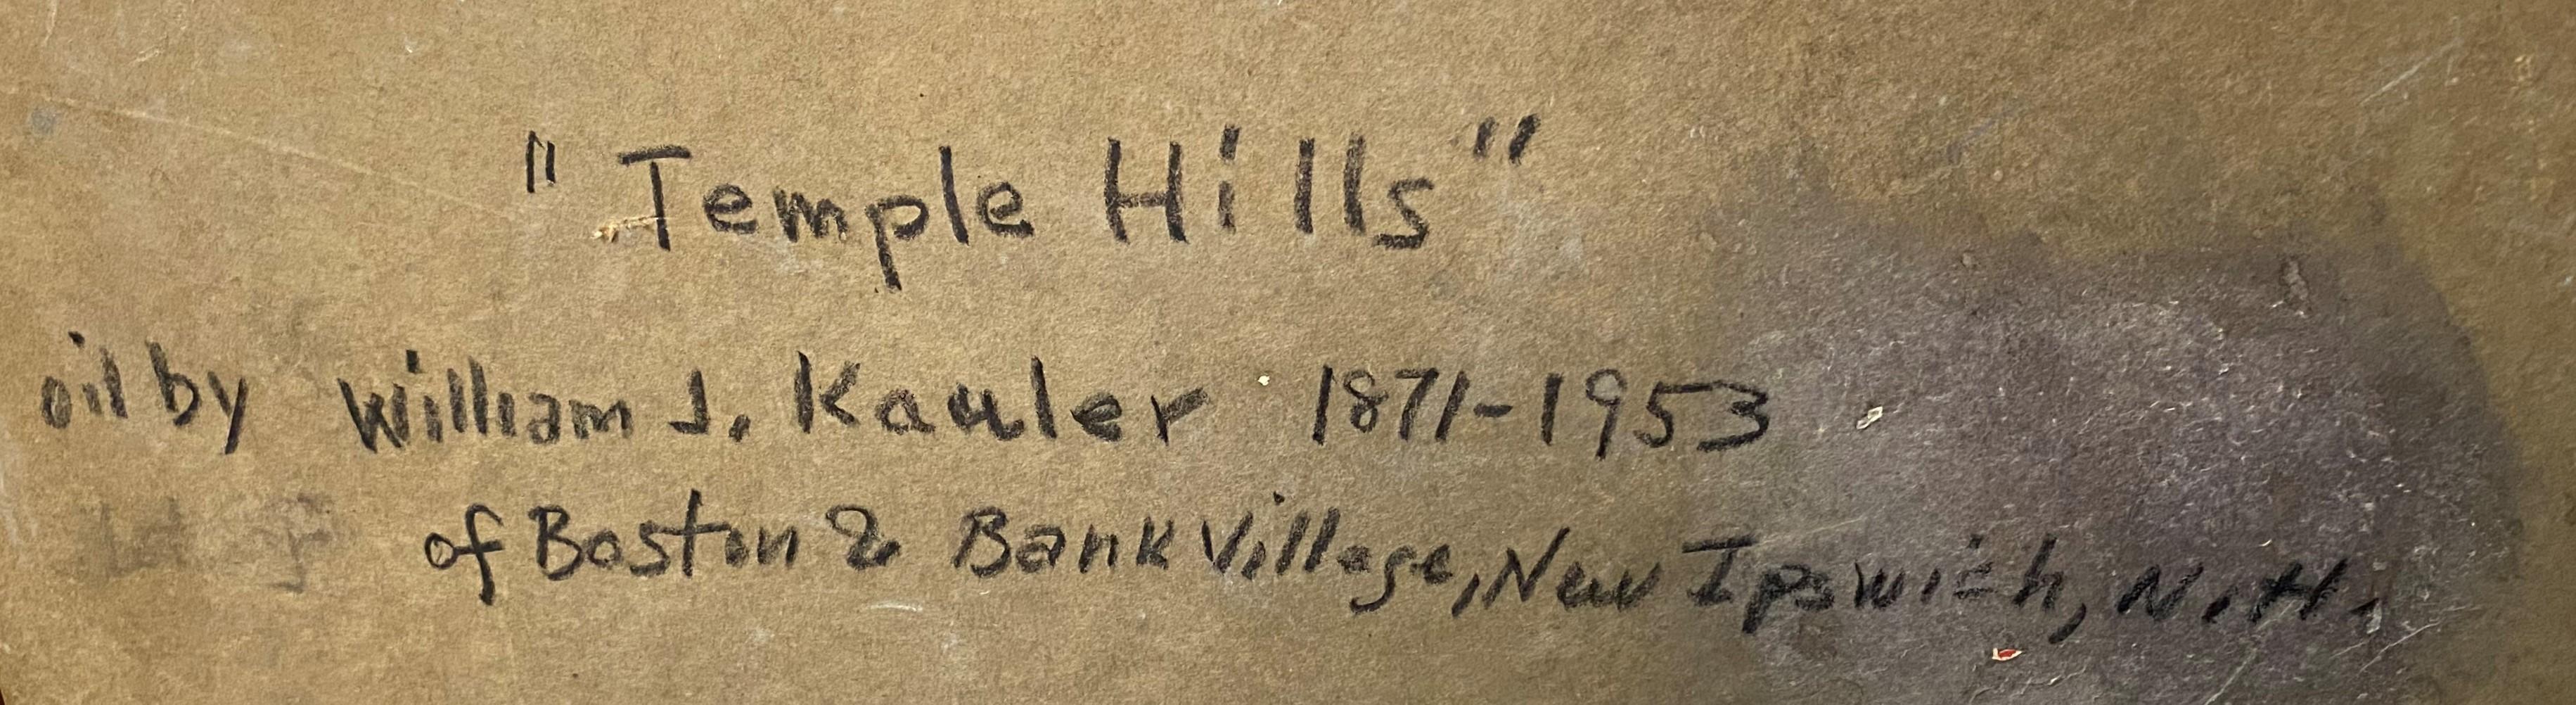 "Temple Hills"
oil by William J. Kauler 1871-1953
of Boston & Bank Village, New Ipswich, N.H.